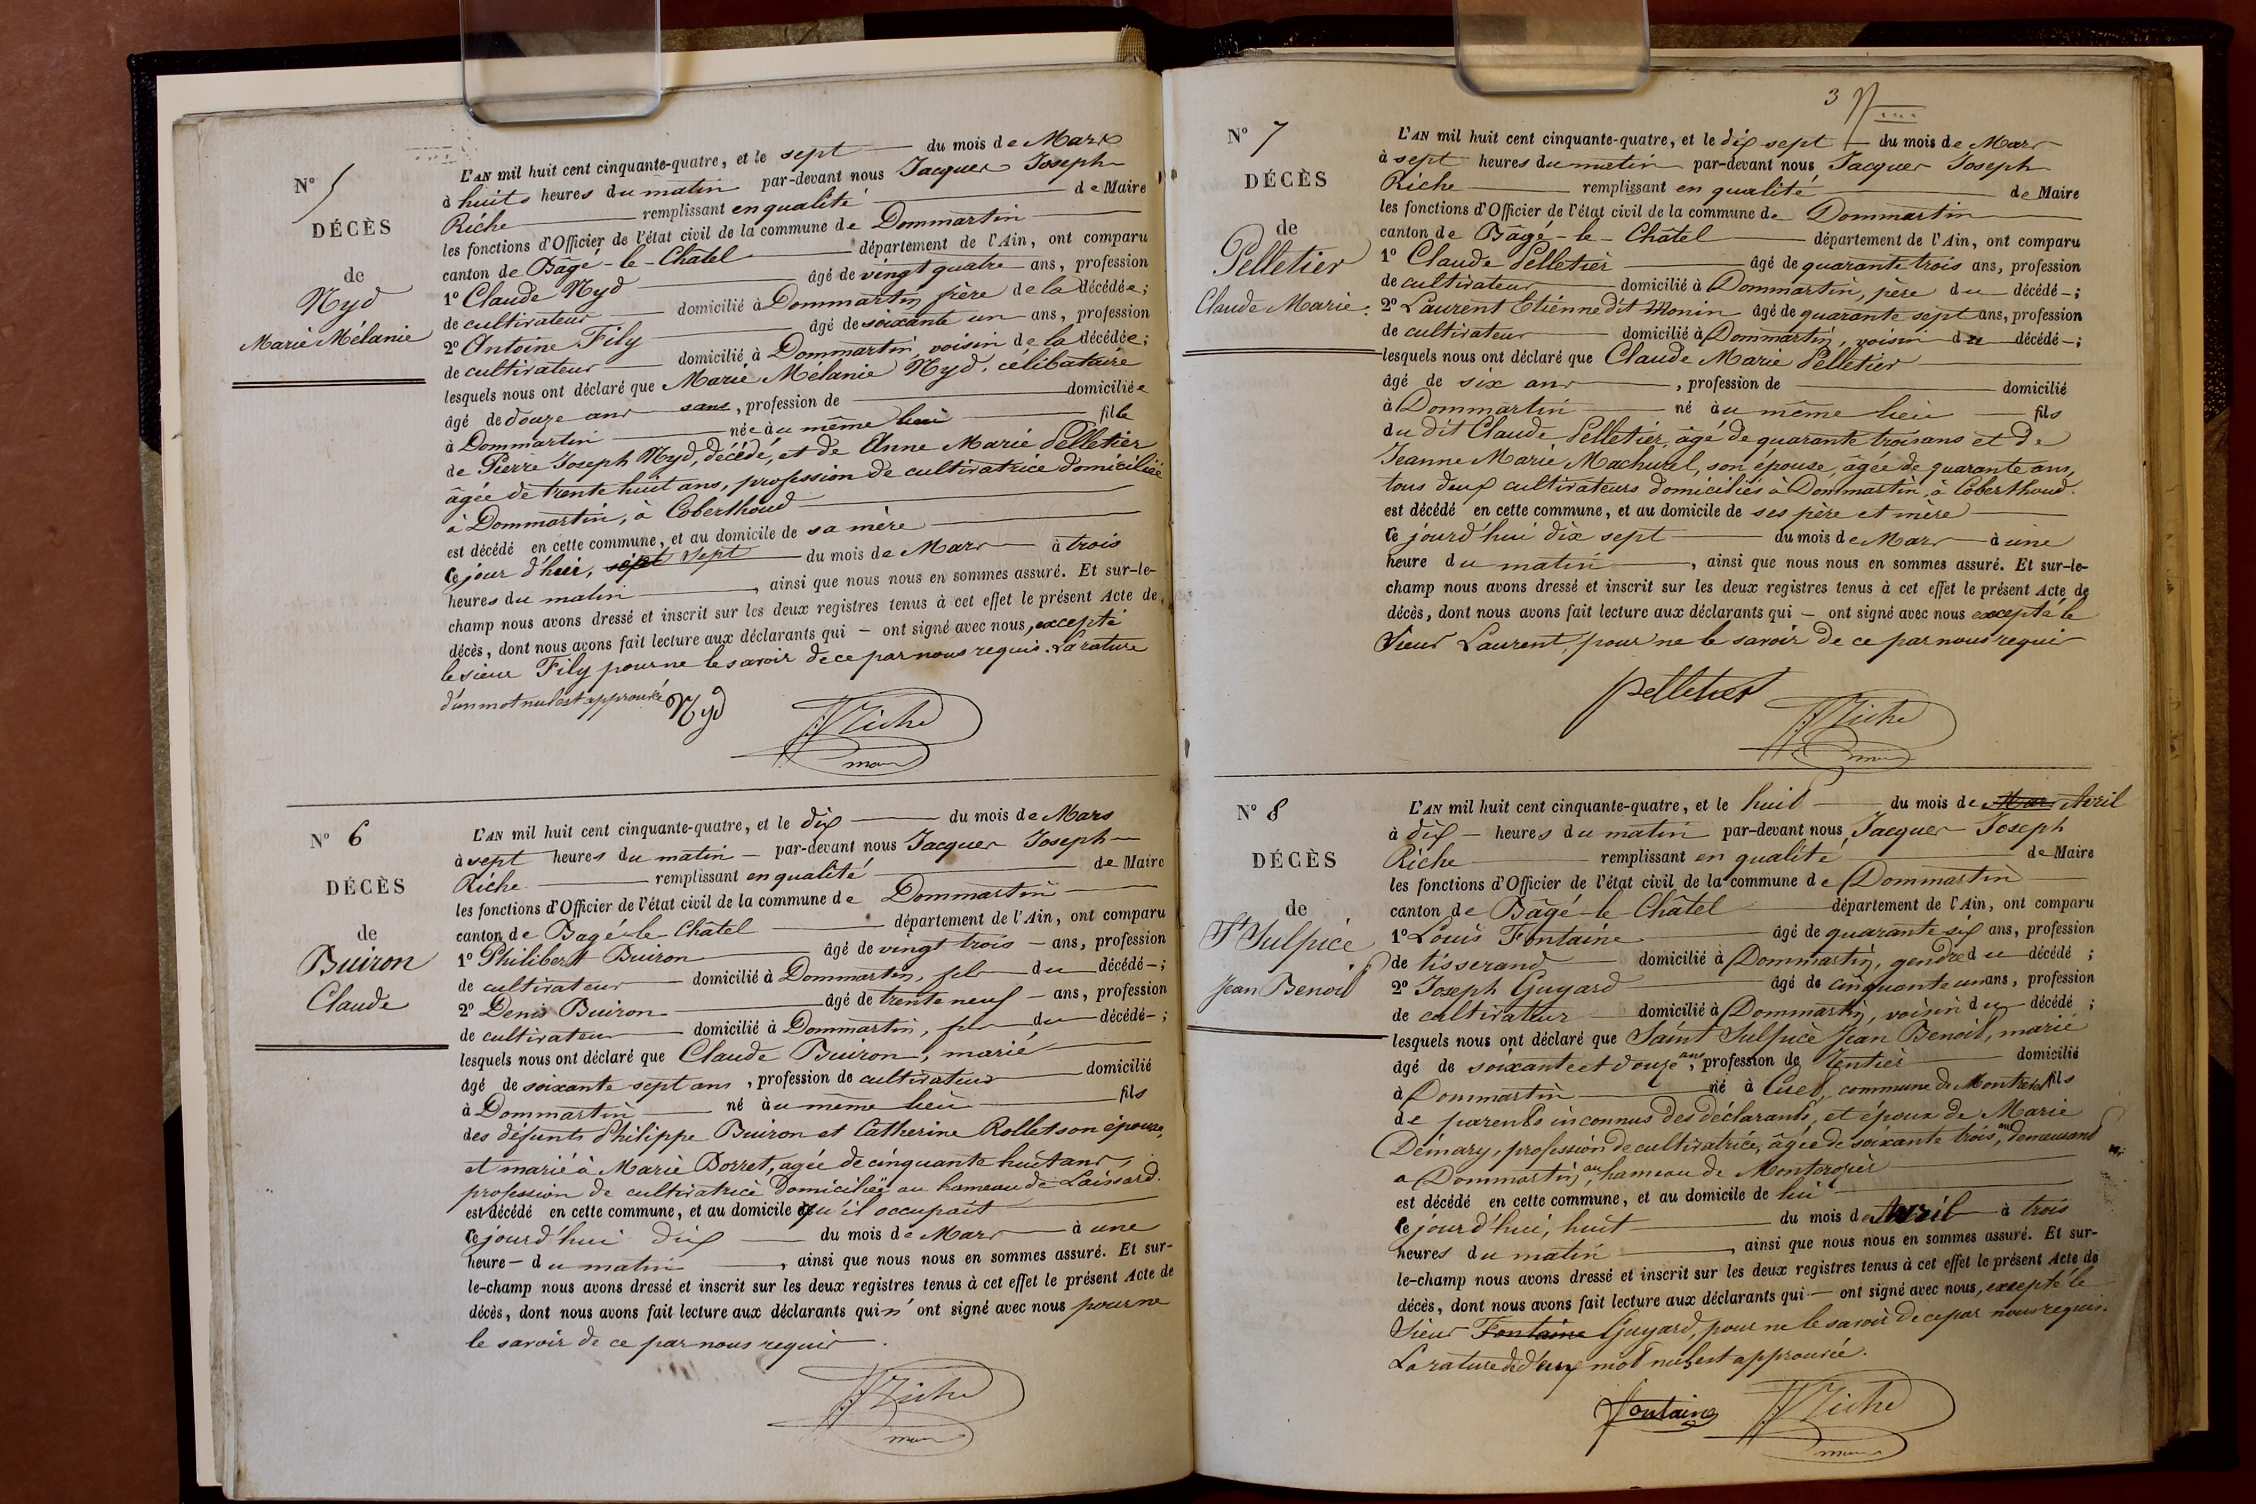 N° 5
DÉCÈS
de
Nyd
Marie Mélanie
L'AN mil huit cent cinquante-quatre, et le sept du mois de Mars
à huit heures du matin par-devant nous Jacques Joseph
Riche remplissant en qualité de Maire
les fonctions d'Officier de l'état civil de la commune de Dommartin
canton de Bâgé-le-Châtel département de l'Ain, ont comparu
1° Claude Nyd âgé de vingt quatre ans, profession
de cultivateur domicilié à Dommartin, frère de la décédée;
2° Antoine Fily âgé de soixante un ans, profession
de cultivateur domicilié à Dommartin, voisin de la décédée;
lesquels nous ont déclaré que Marie Mélanie Nyd, célibataire
âgé de douze ans sans, profession de domiciliée
à Dommartin née au même lieu fille
de Pierre Joseph Nyd, décédé, et de Anne Marie Pelletier
âgée de trente huit ans, profession de cultivatrice domiciliée
à Dommartin, à Coberthoud
est décédé en cette commune, et au domicile de sa mère
Ce jour d'hui, sept sept du mois de Mars à trois
heures du matin, ainsi que nous nous en sommes assuré. Et sur-le-
champ nous avons dressé et inscrit sur les deux registres tenus à cet effet le présent Acte de
décès, dont nous avons fait lecture aux déclarants qui – ont signé avec nous, excepté
le sieur Fily pour ne le savoir de ce par nous requis. La rature
d'un mot nul est approuvée
Nyd
JJ Riche
maire
N° 6
DÉCÈS
de
Buiron
Claude
L'AN mil huit cent cinquante-quatre, et le dix du mois de Mars
à sept heures du matin par-devant nous Jacques Joseph
Riche remplissant en qualité de Maire
les fonctions d'Officier de l'état civil de la commune de Dommartin
canton de Bagé-le-Châtel département de l'Ain, ont comparu
1° Philibert Buiron âgé de vingt trois ans, profession
de cultivateur domicilié à Dommartin, fils du décédé;
2° Denis Buiron âgé de trente neuf ans, profession
de cultivateur domicilié à Dommartin, fils du décédé;
lesquels nous ont déclaré que Claude Buiron, marié
âgé de soixante sept ans, profession de cultivateur domicilié
à Dommartin né au même lieu fils
des défunts Philippe Buiron et Catherine Rollet son épouse,
et marié à Marie Dorret, agée de cinquante huit ans,
profession de cultivatrice domiciliée au hameau de Loissard.
est décédé en cette commune, et au domicile qu'il occupait
Ce jourd'hui dix du mois de Mars à une
heure du matin, ainsi que nous nous en sommes assuré. Et sur-
le-champ nous avons dressé et inscrit sur les deux registres tenus à cet effet le présent Acte de
décès, dont nous avons fait lecture aux déclarants qui n'ont signé avec nous pour ne
le savoir de ce par nous requis.
JJ Riche
maire
3
N° 7
DÉCÈS
de
Pelletier
Claude Marie.
L'AN mil huit cent cinquante-quatre, et le dix sept du mois de Mars
à sept heures du matin par-devant nous Jacques Joseph
Riche remplissant en qualité de Maire
les fonctions d'Officier de l'état civil de la commune de Dommartin
canton de Bâgé-le-Châtel département de l'Ain, ont comparu
1° Claude Pelletier âgé de quarante trois ans, profession
de cultivateur domicilié à Dommartin, père du décédé;
2° Laurent Etienne dit Monin âgé de quarante sept ans, profession
de cultivateur domicilié à Dommartin, voisin du décédé;
lesquels nous ont déclaré que Claude Marie Pelletier
âgé de six ans, profession de domicilié
à Dommartin né au même lieu fils
du dit Claude Pelletier, âgé de quarante trois ans et de
Jeanne Marie Machurel, son épouse, âgée de quarante ans,
tous deux cultivateurs domiciliés à Dommartin, à Coberthoud.
est décédé en cette commune, et au domicile de ses père et mère
Ce jourd'hui dix sept du mois de Mars à une
heure du matin, ainsi que nous nous en sommes assuré. Et sur-le-
champ nous avons dressé et inscrit sur les deux registres tenus à cet effet le présent Acte de
décès, dont nous avons fait lecture aux déclarants qui – ont signé avec nous excepté le
Sieur Laurent, pour ne le savoir de ce par nous requis
pelletier
JJ Riche
maire
N° 8
DÉCÈS
de
St Sulpice
Jean Benoit
L'AN mil huit cent cinquante-quatre, et le huit du mois de Mars Avril
à dix heures du matin par-devant nous Jacques Joseph
Riche remplissant en qualité de Maire
les fonctions d'Officier de l'état civil de la commune de Dommartin
canton de Bâgé-le-Châtel département de l'Ain, ont comparu
1° Louis Fontaine âgé de quarante six ans, profession
de tisserand domicilié à Dommartin, gendre du décédé;
2° Joseph Guyard âgé de cinquante un ans, profession
de cultivateur domicilié à Dommartin, voisin du décédé;
lesquels nous ont déclaré que Saint Sulpice Jean Benoit, marié
âgé de soixante et douze ans, profession de Rentier domicilié
à Dommartin né à Cuet, commune de Montrevel fils
de parents inconnus des déclarants, et époux de Marie
Démary, profession de cultivatrice, âgée de soixante trois ans, demeurant
à Dommartin, au hameau de Montcrozier
est décédé en cette commune, et au domicile de lui
Ce jourd'hui, huit du mois de Avril à trois
heures du matin, ainsi que nous nous en sommes assuré. Et sur-
le-champ nous avons dressé et inscrit sur les deux registres tenus à cet effet le présent Acte de
décès, dont nous avons fait lecture aux déclarants qui – ont signé avec nous, excepté le
Sieur Fontaine Guyard, pour ne le savoir de ce par nous requis.
La rature de deux mots nuls est approuvée.
fontaine
JJ Riche
maire